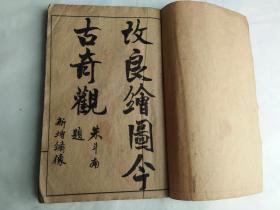 改良繪圖今
古奇觀
朱斗南
題
新增繡像